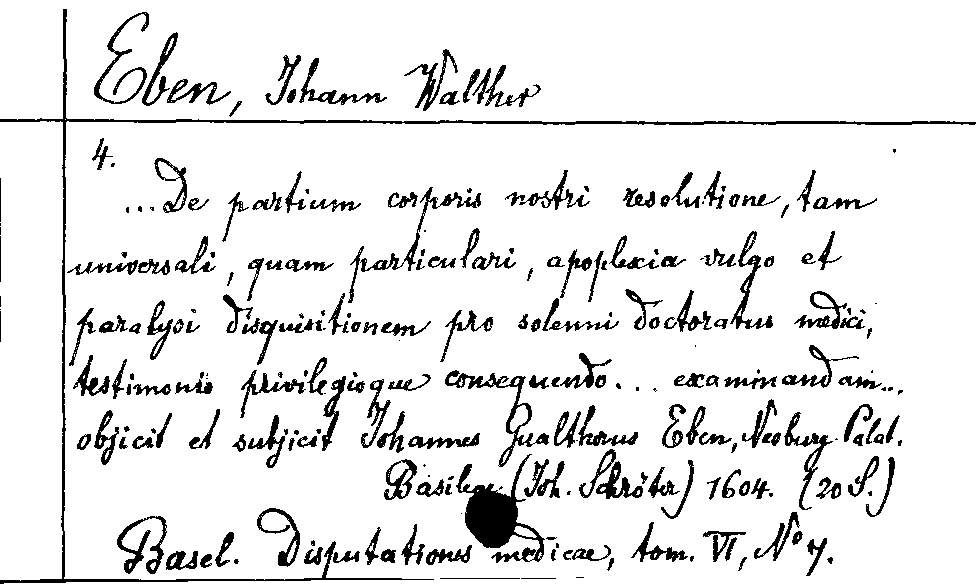 Eben, Johann Walther
4.
...De partium corporis nostri resolutione, tam
universali, quam particulari, apoplexia vulgo et
paralysi disquisitionem pro solenni doctoratus medici,
testimonio privilegioque consequendo... examinandam...
objicit et subjicit Johannes Gualtherus Eben, Neoburg. Palat.
Basileae (Joh. Schröter) 1604. (20 S.)
Basel. Disputationes medicae, tom. VI, No 7.